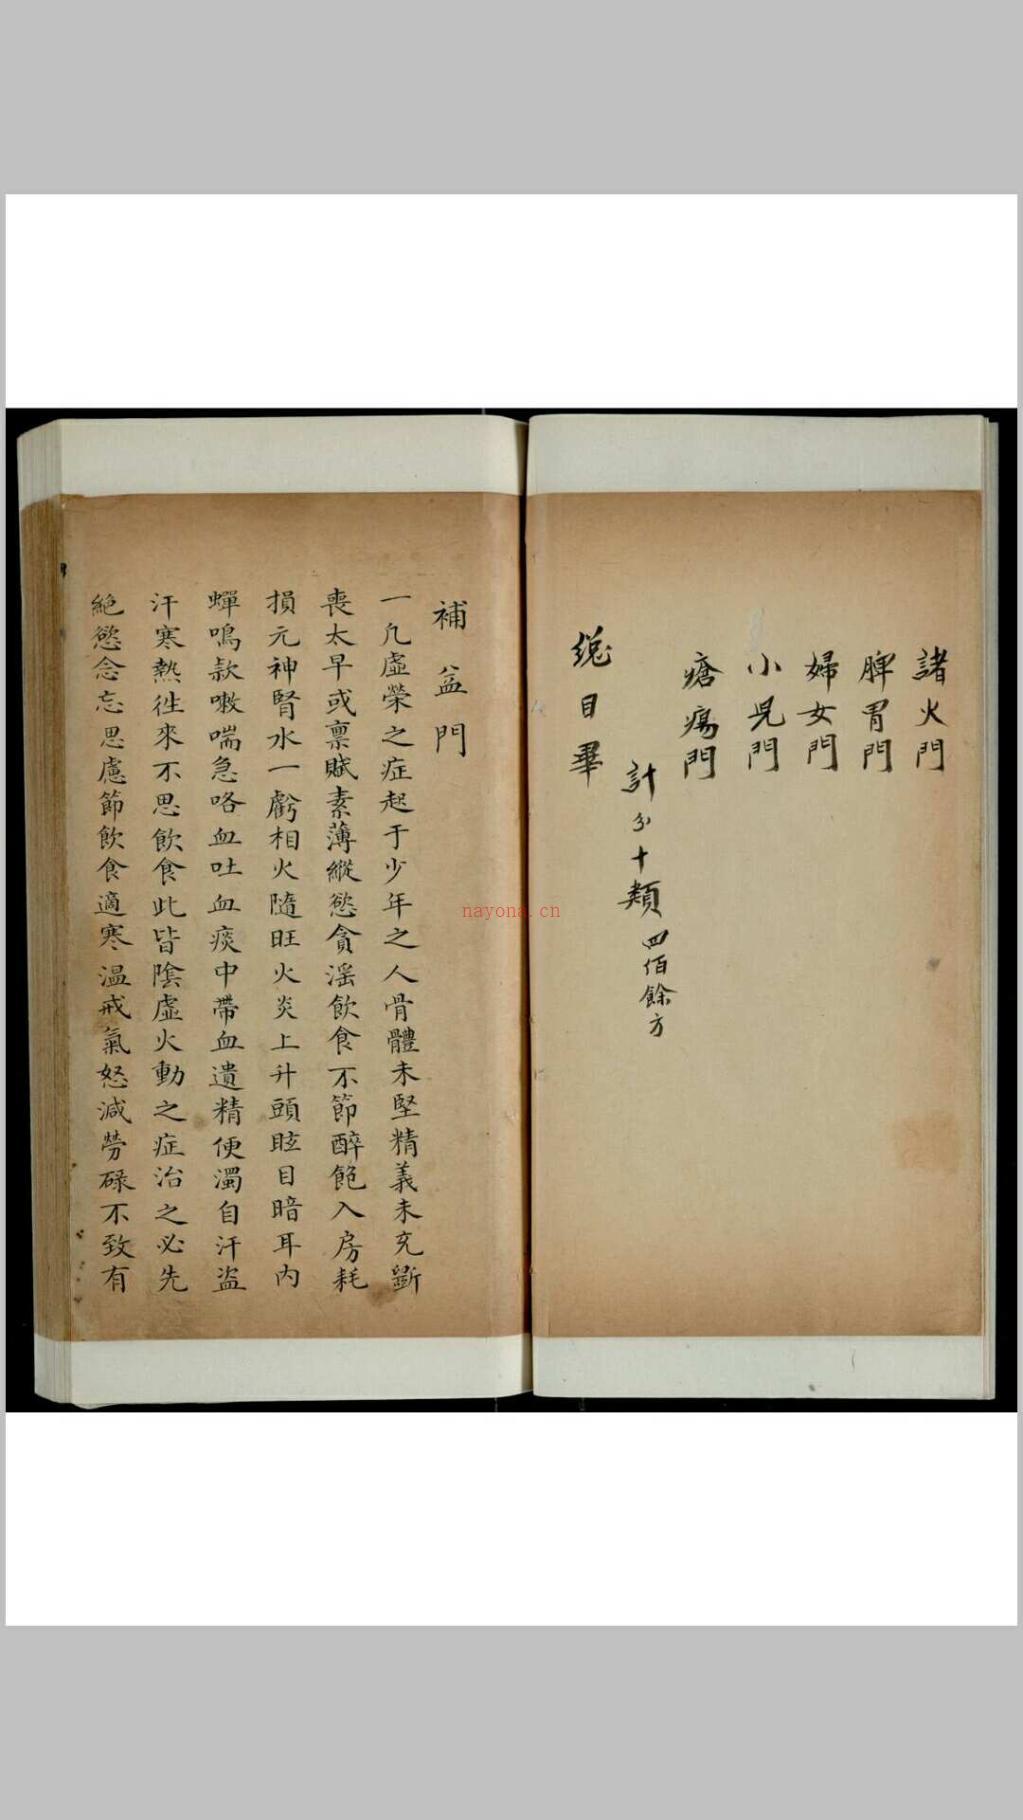 諸火門
脾胃門
婦女門
小児門
瘡瘍門
計分十類 四佰餘方
総目畢
補益門
一凢虛榮之症起于少年之人骨體未堅精義未充斵
喪太早或禀賦素薄縱慾貪滛飲食不節醉飽入房耗
損元神腎水一虧相火隨旺火炎上升頭眩目暗耳内
蟬鳴欬嗽喘急咯血吐血痰中帶血遺精便濁自汗盗
汗寒熱徃來不思飲食此皆陰虛火動之症治之必先
絶慾念忘思慮節飲食適寒温戒氣怒減勞碌不致有
nayona.cn